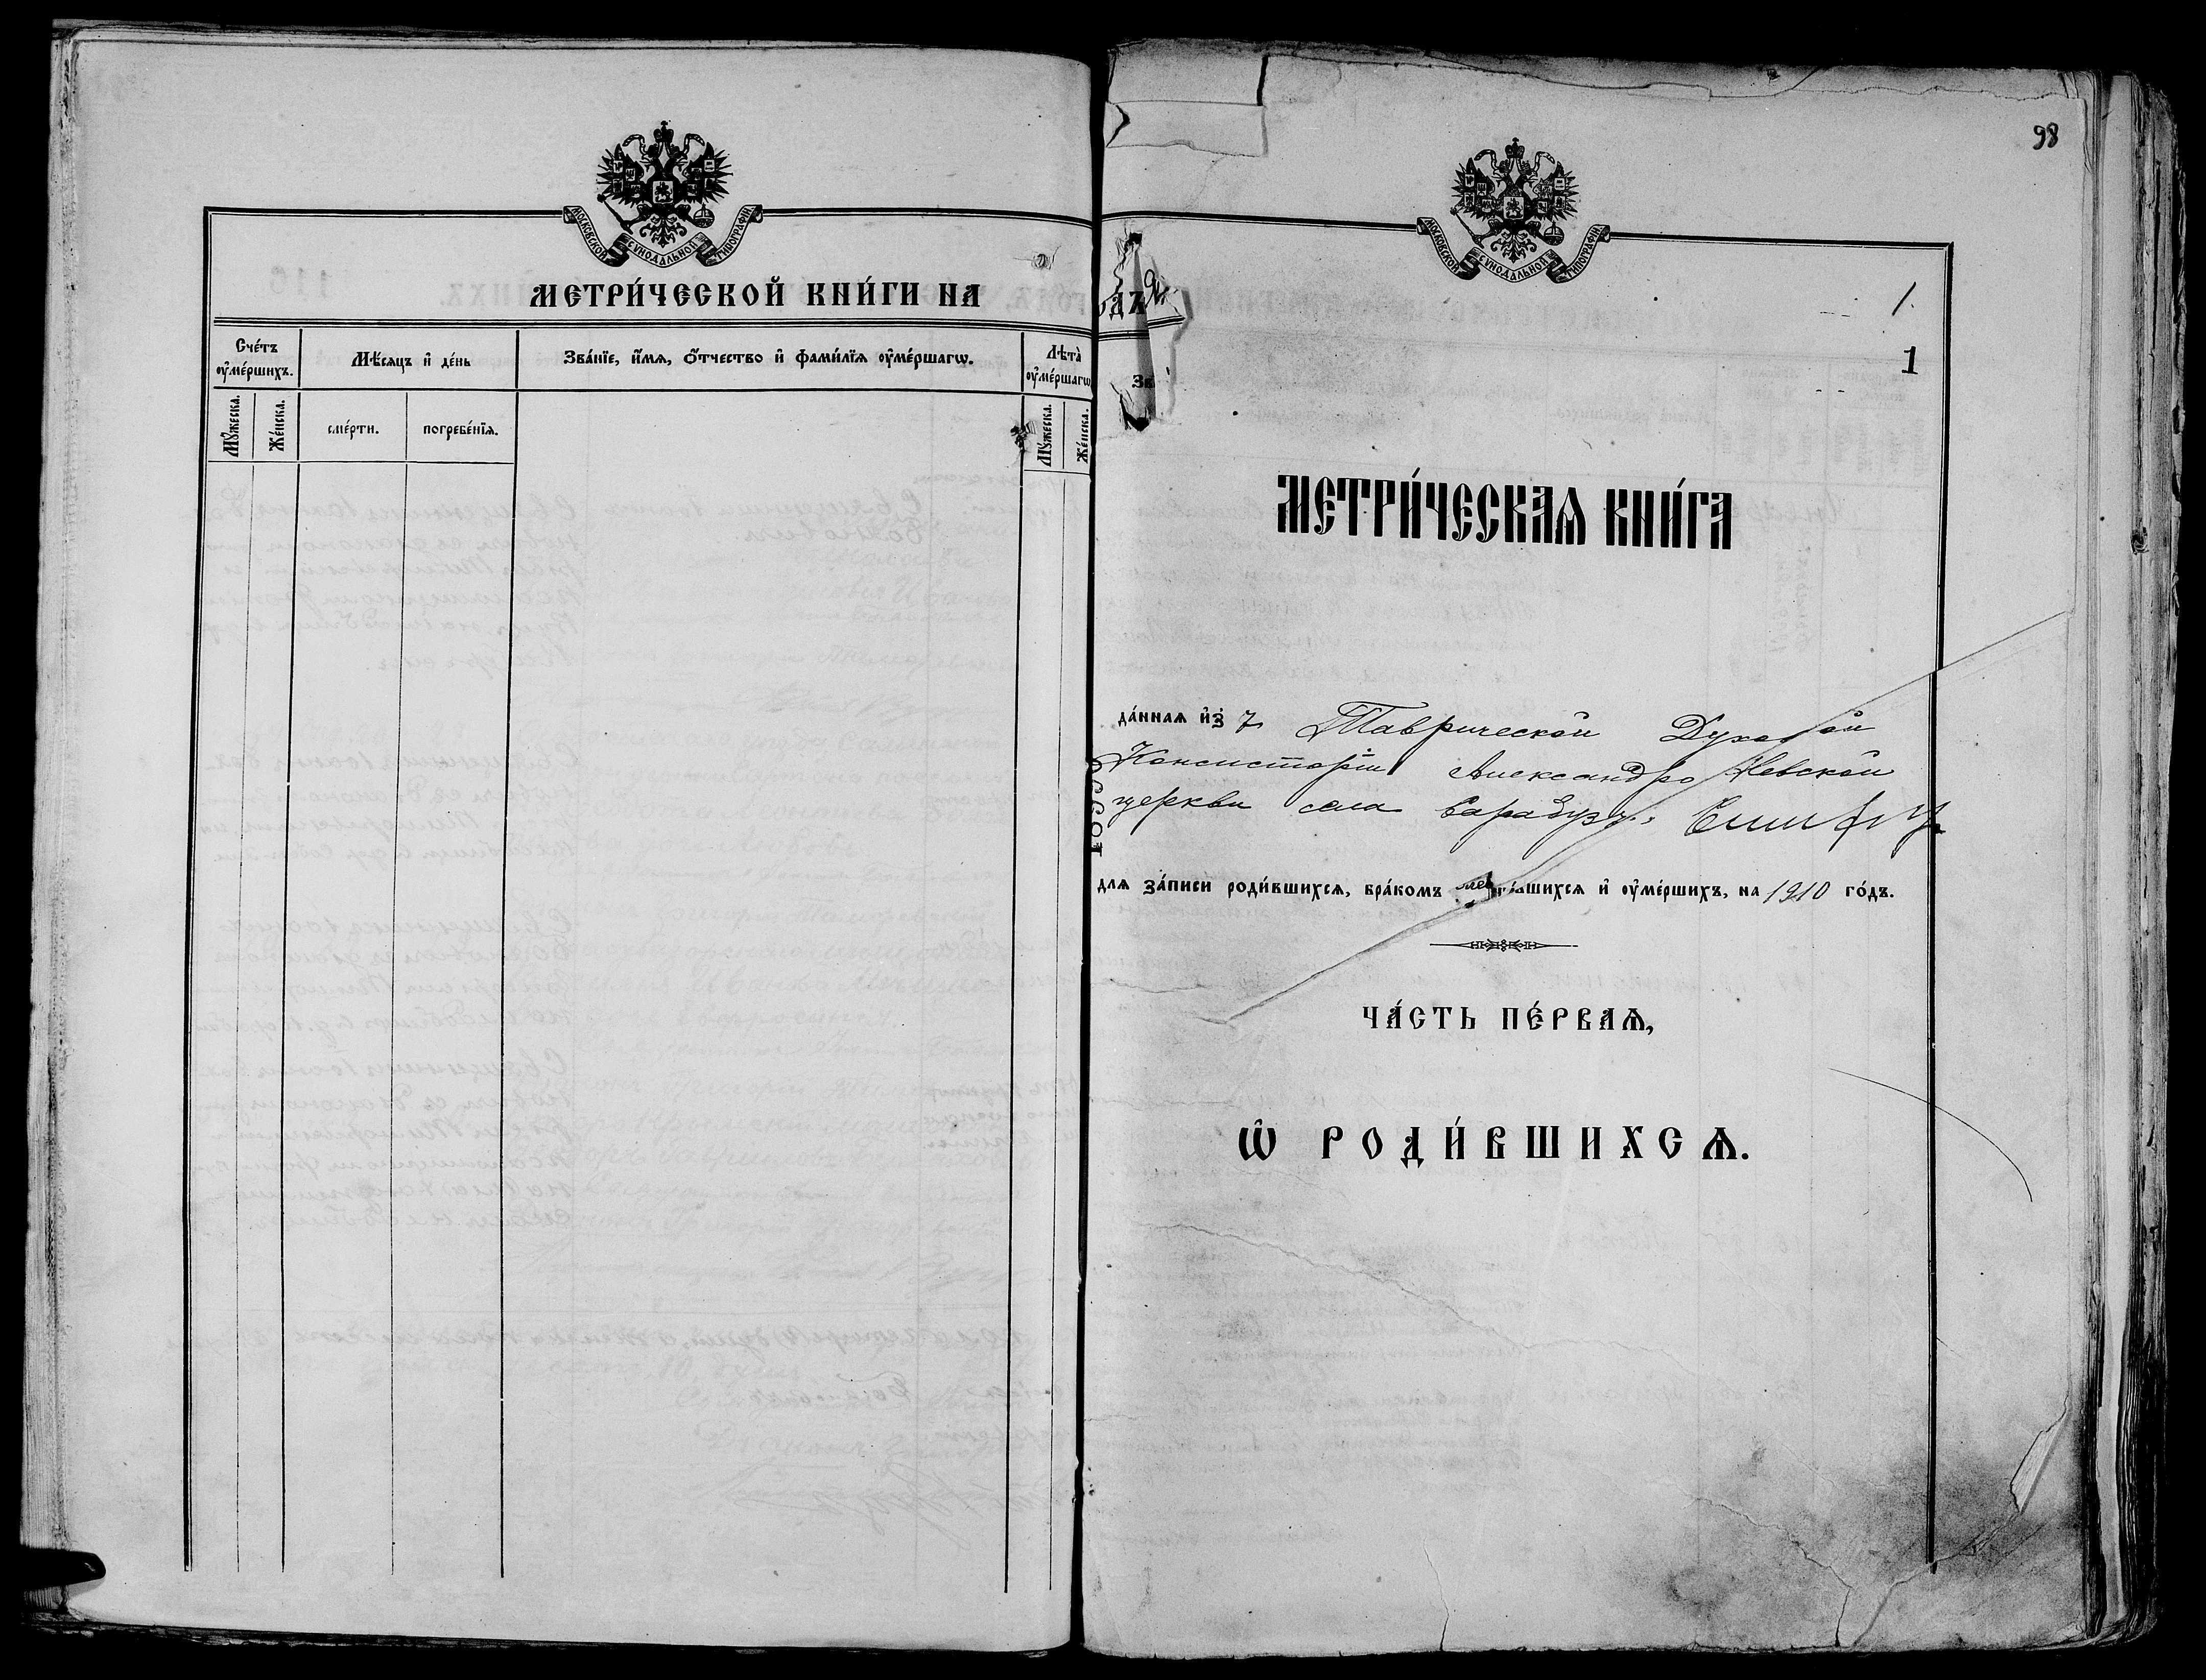 МОСКОВСКОЙ СѴНОДАЛЬНОЙ ТИПОГРАФІИ
МЕТРИ́ЧЕСКОЙ КНИ́ГИ НА
Счéтъ ᲂу҆мéршихъ.
Мѣ́сяцъ и҆ дéнь
Звáнїе, и҆́мѧ, ѻ҆́тчество и҆ фами́лїѧ ᲂу҆мéршагѡ.
Лѣтà ᲂу҆мéршагѡ
Мꙋ́жеска.
Жéнска.
смéрти.
погребéнїѧ.
Мꙋ́жеска.
Жéнска.
98
МОСКОВСКОЙ СѴНОДАЛЬНОЙ ТИПОГРАФІИ
одъ
Зв
1.
1
МЕТРИ́ЧЕСКАѦ КНИ́ГА
дáннаѧ и҆з̾ Таврической Духовной
Консисторіи Александро Невской
церкви села Сарабузъ Симф у
для зáписи роди́вшихсѧ, брáкомъ шихсѧ и҆ ᲂу҆мéршихъ, на 1910 гóдъ.
ЧА́СТЬ ПЕ́РВАѦ,
Ѡ҆ РОДИ́ВШИХСѦ.